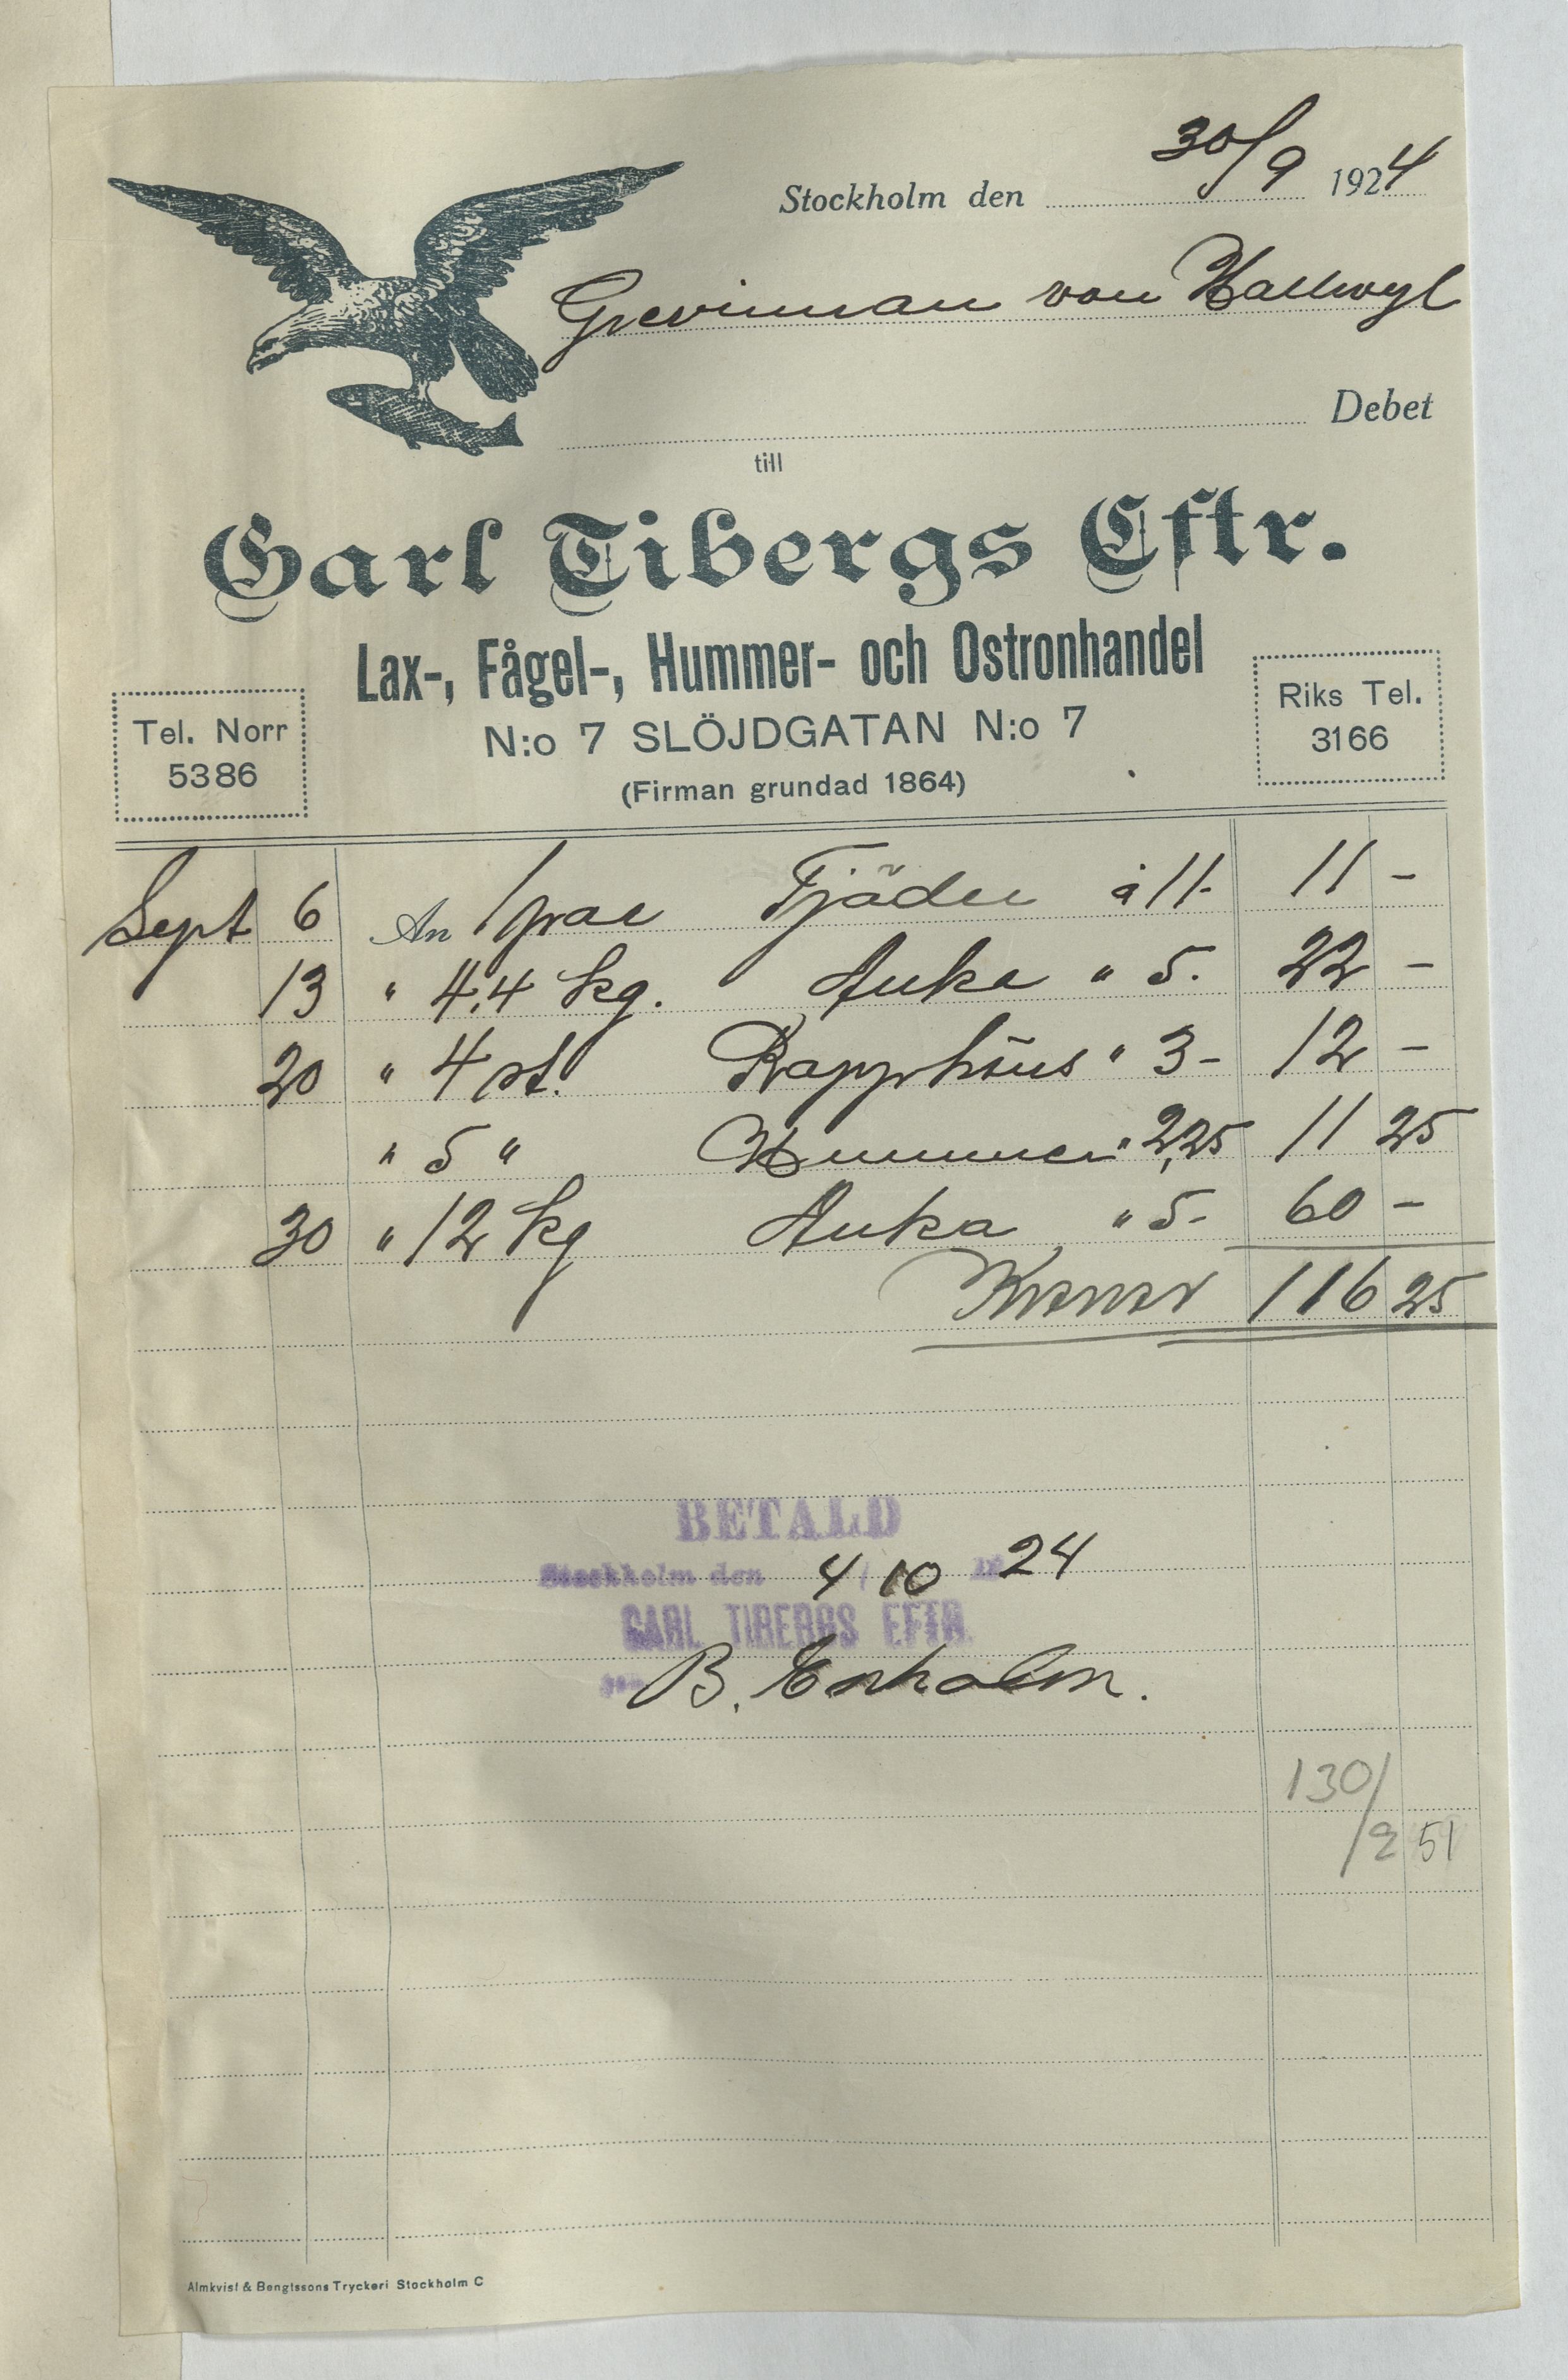 Stockholm den 30/9 1924
Grevinnan von Hallwyl
Debet
till
Carl Tibergs Eftr.
Lax-, Fågel-, Hummer- och Ostronhandel
Tel. Norr
5386
N:o 7 SLÖJDGATAN N:o 7
(Firman grundad 1864)
Riks Tel.
3166
Sept 6 An 1 par Tjäder à 11- 11 -
13 " 4,4 kg. Anka " 5. 22 -
20 " 4 st. Rapphöns " 3- 12 -
" 5 " Hummer " 2,25 11 25
30 " 12 kg Anka " 5- 60 -
Kronor 116 25
BETALD
Stockholm den 4/10 19 24
CARL TIBERGS EFTR.
B. Enholm.
130/
251
Almkvist & Bengtssons Tryckeri Stockholm C